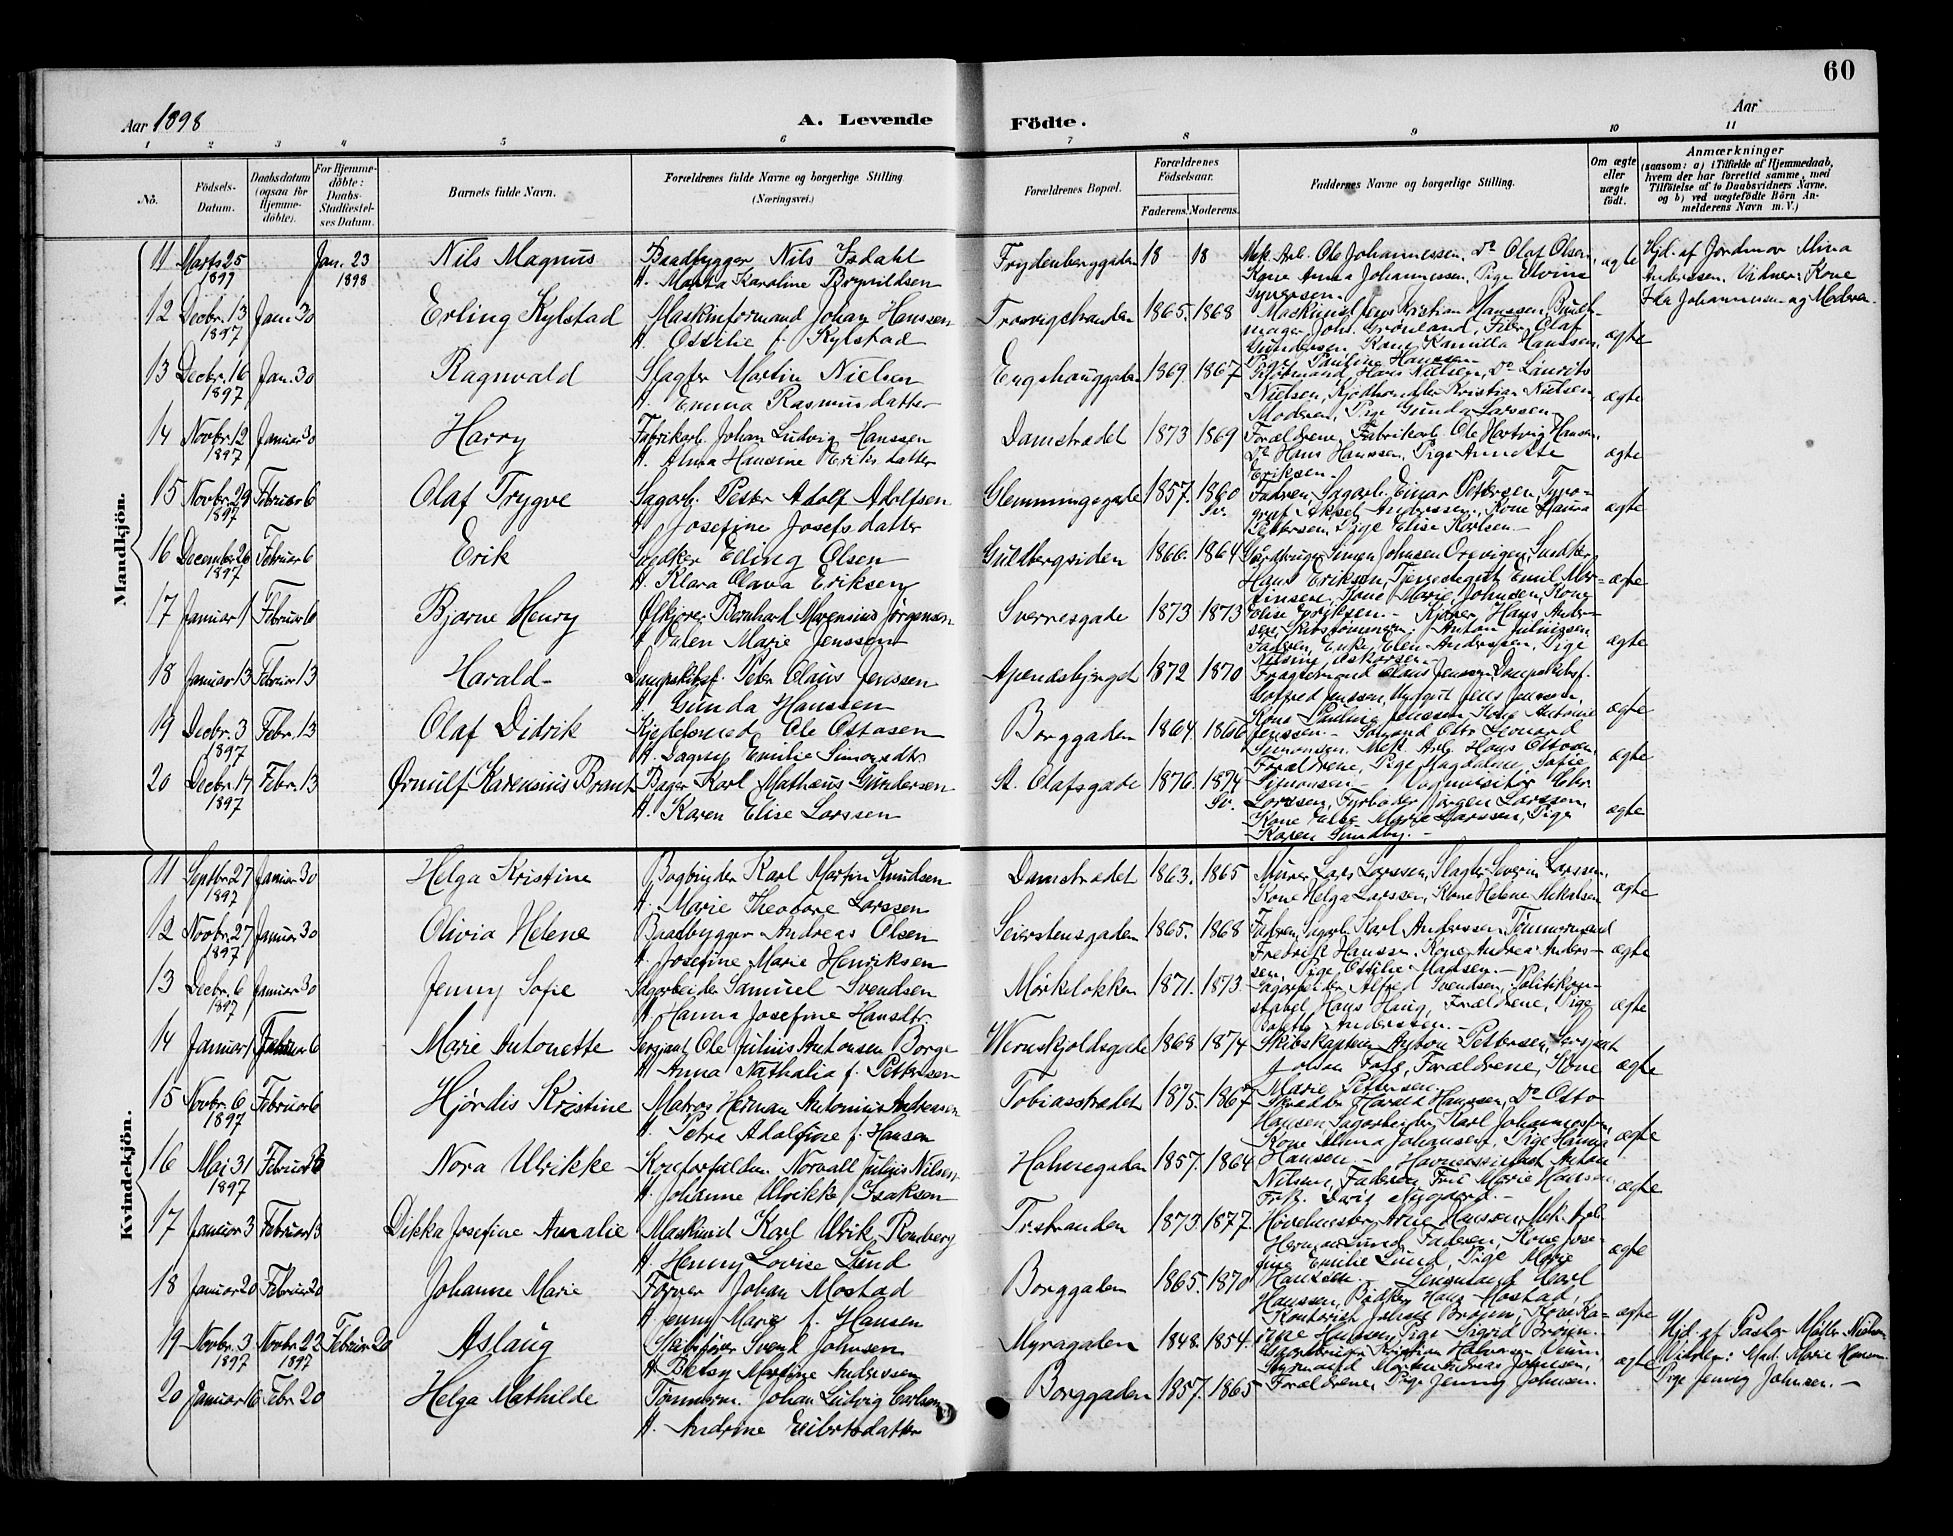 60
Aar 1898
A. Levende
Födte.
Aar
1 2 3 4 5 6 7 8 9 10 11
No.
Födsels-
Datum.
Daabsdatum
(ogsaa för
Hjemme-
döbte).
For Hjemme-
döbte:
Daabs-
Stadfæstel-
ses Datum.
Barnets fulde Navn.
Forældrenes fulde Navne og borgerlige Stilling
(Næringsvei.)
Forældrenes Bopæl.
Forældrenes
Födselsaar.
Faderens. Moderens.
Faddernes Navne og borgerlige Stilling.
Om ægte
eller
uægte
födt.
Anmærkninger
(saasom: a) i Tilfælde af Hjemmedaab,
hvem der har forrettet samme, med
Tilföielse af to Daabsvidners Navne,
og b) ved uægtefödte Börn An-
melderens Navn m. V.)
Mandkjön.
11 Marts 25 1897 Jan. 23 1898 Nils Magnus Baadbygger Nils Isdahl
H. Marta Karoline Brynildsen
Frydenberggaden 18 18 Mek. Arb. Ole Johannessen, do Olaf Olsen,
Kone Anna Johannessen, Pige Elvine
Synersen. ægte
Hjd. af Jordmor Mina
Anderssen. Vidner: Kone
Ida Johannessen og Moderen.
12 Decbr. 13 1897 Jan. 30 Erling Kylstad Maskinformand Johan Hanssen
H. Ossilie f. Kylstad
Trosvigstranden 1865. 1868 Maskinist Jens Kristian Hanssen, Bundt-
mager Johs. Grönland, Olaf
Gundersen, Kone Kamilla Hanssen,
Pige Pauline Hanssen ægte
13 Decbr. 16 1897 Jan. 30 Ragnvald Slagter Martin Nielsen
H. Emma Rasmusdatter
Engehauggaden 1869 1867 Hans Nielsen, do Laurits
Nielsen, Kjödhandler Kristian Nielsen
Moderen, Pige Gunda Larssen ægte
14 Novbr. 12 1897 Januar 30 Harry Fabrikarb. Johan Ludvig Hanssen
H. Alma Hansine Eriksdatter
Damstrædet 1873 1869 Forældrene, Fabrikarb. Ole Hartvig Hansen,
do Hans Hanssen, Pige Annette
Eriksen ægte
15 Novbr. 29 1897 Februar 6 Olaf Trygve Sagarb. Peter Adolf Adolfsen
H. Josefine Josefsdatter
Glemmingegade 1857. 1860 Sv. Faderen, Sagarb. Einar Pettersen, Typo-
graf Aksel Anderssen, Kone Laura
Pettersen, Pige Elise Karlsen ægte
16 December 26 1897 Februar 6 Erik Snedker Elling Olsen
H. Klara Olava Eriksen
Guldbergsiden 1866. 1864 Gaardbruger Simen Johnsen Orevigen, Snedker
Hans Eriksen, Tjenestegut Emil Mar-
tinsen, Kone Marie Johnsen, Kone
Elise Eriksen. ægte
17 Januar 1 Februar 6 Bjarne Henry Ölkjörer Bernhard Marensius Jörgensen
H. Elen Marie Jenssen
Sverresgade 1873 1873 Kjörer Hans Ander-
sen, Skibstömmerm. Anton Juliussen,
Faderen, Enke Elen Anderssen, Pige
Nilsine Oskarsen ægte
18 Januar 13 Februar 13 Harald Dampskibsf. Peter Claus Jenssen
H. Gunda Hanssen
Apenesbjerget 1872 1870 Fragtemand Claus Jenssen, Dampskibsf.
Gotfred Jenssen, Jens Jenssen,
Kone Pauline Jenssen, Kone Antonie
Jenssen ægte
19 Decbr. 3 1897 Febr. 13 Olaf Didrik Kjedelsmed Ole Ottosen
H. Dagny Emilie Simonsdtr.
Borggaden 1864. 1866 Sömand Otto Leonard
Simonsen, Mek. Arb. Hans Ottosen,
Forældrene, Pige Magdalene Sofie
Simonsen ægte
20 Decbr. 17 1897 Febr. 13 Ørnulf Karensius Brant Bager Karl Mathæus Gundersen
H. Karen Elise Larssen
St. Olafsgade 1876. 1874 Sv. Vognvisitör Chr.
Larssen, Fyrböder Jörgen Larssen,
Kone Else Marie Larssen, Pige
Karen Sundby. ægte
Kvindekjön.
11 Septbr. 27 1897 Januar 30 Helga Kristine Bogbinder Karl Martin Knudsen
H. Marie Theodore Larssen
Damstrædet 1863. 1865 Murer Lars Larssen, Slagter Severin Larssen,
Kone Helga Larssen, Kone Helene Mikalsen ægte
12 Novbr. 27 1897 Januar 30 Olivia Helene Baadbygger Andreas Olsen
H. Josefine Marie Henriksen
Seierstensgaden 1865. 1868 Faderen, Sagarb. Karl Anderssen, Tömmermand
Fredrik Hanssen, Kone Andrea Anders-
sen, Pige Ossilie Madsen. ægte
13 Decbr. 6 1897 Januar 30 Jenny Sofie Sagarbeider Samuel Svendsen
H. Hanna Josefine Hansdtr.
Mörkeløkken 1871. 1873. Sagarbeider Alfred Svendsen, Politikon-
stabel Hans Haug, Forældrene, Pige
Bolette Anderssen. ægte
14 Januar 1 Februar 6 Marie Antonette Sergiant Ole Julius Antonsen Borge
H. Anna Nathalia f. Pettersen
Wernskjoldsgade 1868 1874 Skibskaptein Anton Pettersen, Sersjant
Johan Foss, Forældrene, Kone
Marie Pettersen. ægte
15 Novbr. 6 1897 Februar 6 Hjördis Kristine Matros Herman Antonius Andreasen
H. Petra Adolfine f. Hansen
Tobiasstrædet 1875. 1867 Skrædder Harald Hanssen, do Otto
Hansen, Sagarbeider Karl Johannessen,
Kone Alma Johansen, Pige Hanna
Hansen. ægte
16 Mai 31 1897 Februar 6 Nora Ulrikke Norvall Julius Nilsen
H. Johanne Ulrikke Isaksen
Holmegaden 1857. 1864 Havneassistent Anton
Nilsen, Faderen, Fru Marie Hansen
Frk. Davis Nygaard. ægte
17 Januar 3 Februar 13 Dikka Josefine Amalie Maskinist Karl Ulrik Romberg
H. Henny Lovise Lund
Tr.stranden 1873. 1877. Hövelmester Arne Hanssen, Mek. Arb.
Herman Lund, Faderen, Kone Jose-
fine Emilie Lund, Pige Marie
Hanssen ægte
18 Januar 20 Februar 20 Johanne Marie Farver Johan Mostad
H. Jenny Marie f. Hansen
Borggaden 1865. 1870 Carl
Hanssen, Bödker Hans Mostad,
Kontorist Johan Broym, Kone Ka-
rine Hanssen, Pige Sigrid Broym. ægte
19 Novbr. 3 1897 Novbr. 22 1897 Februar 20 Aslaug Skibsförer Svend Johnsen
H. Betsy Martine Anderssen
Myragaden 1848. 1854. Gaardbruger Kristian Halvorsen
Styrmand Morten Andreas Johnsen,
Forældrene, Pige Jenny Johnsen. ægte
Hjd. af Pastor Möller
Vidner: Mad. Marie Hansen
Pige Jenny Johnsen.
20 Januar 16 Febr. 20 Helga Mathilde Tömmerm. Johan Ludvig Carlsen
H. Andrine Eilertsdatter
Borggaden 1857. 1865